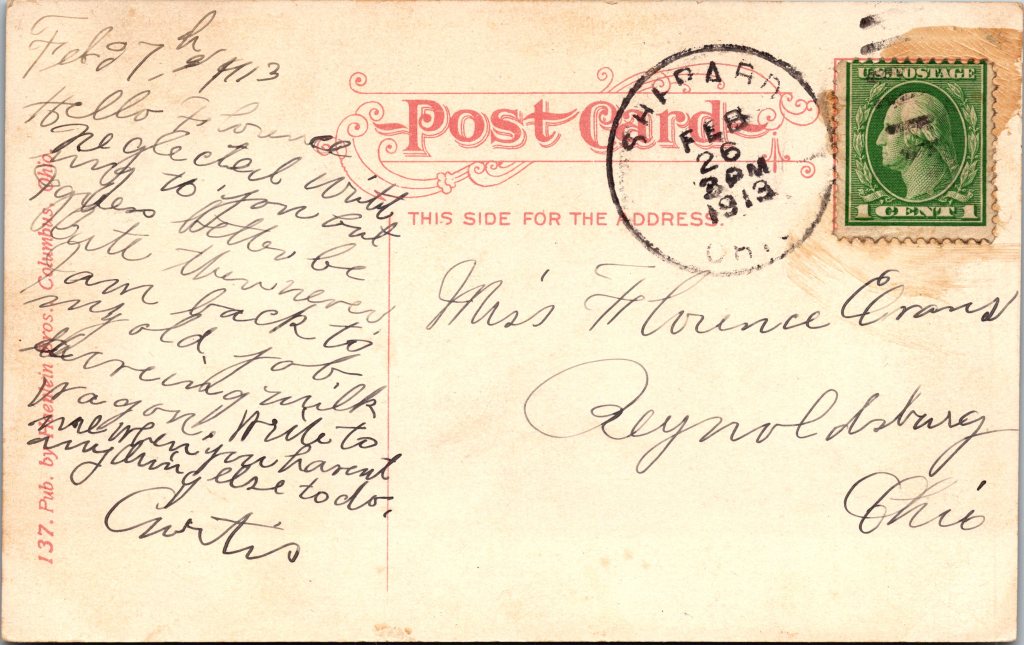 Feb 27, 1913
Hello Florence
neglected writt
ing to you but
guess better be
late then never
I am back to
my old job
driveing milk
wagon. Write to
me when you havent
anything else to do.
Curtis
137. Pub. by Bros. Columbus, Ohio
Post Card
THIS SIDE FOR THE ADDRESS.
SHEPARD
FEB
26
PM
1913
OHIO
U.S. POSTAGE
1 CENT 1
Miss Florence Evans
Reynoldsburg
Ohio